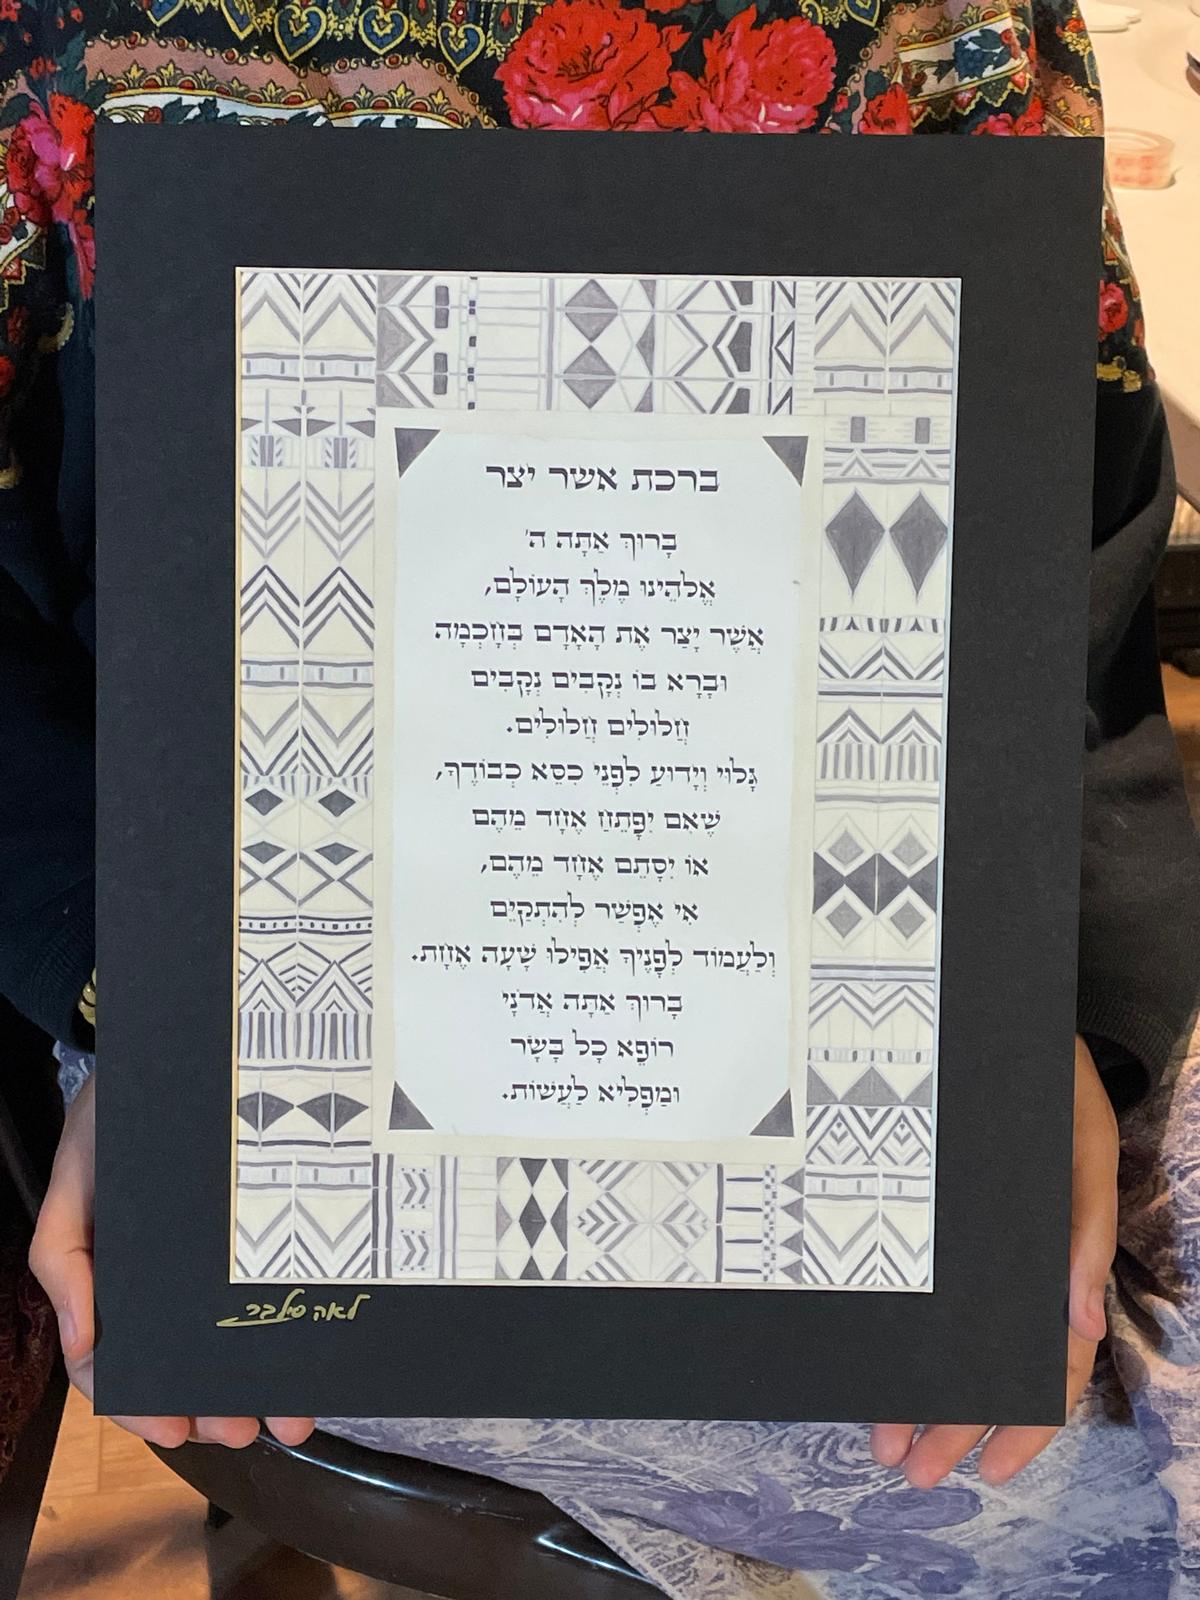 ברכת אשר יצר
בָּרוּךְ אַתָּה ה'
אֱלֹהֵינוּ מֶלֶךְ הָעוֹלָם,
אֲשֶׁר יָצַר אֶת הָאָדָם בְּחָכְמָה
וּבָרָא בוֹ נְקָבִים נְקָבִים
חֲלוּלִים חֲלוּלִים.
גָּלוּי וְיָדוּעַ לִפְנֵי כִסֵּא כְבוֹדֶךָ,
שֶׁאִם יִפָּתֵחַ אֶחָד מֵהֶם
אוֹ יִסָּתֵם אֶחָד מֵהֶם,
אִי אֶפְשַׁר לְהִתְקַיֵּם
וְלַעֲמוֹד לְפָנֶיךָ אֲפִילוּ שָׁעָה אֶחָת.
בָּרוּךְ אַתָּה אֲדֹנָי
רוֹפֵא כָל בָּשָׂר
וּמַפְלִיא לַעֲשׂוֹת.
לאה סילבר